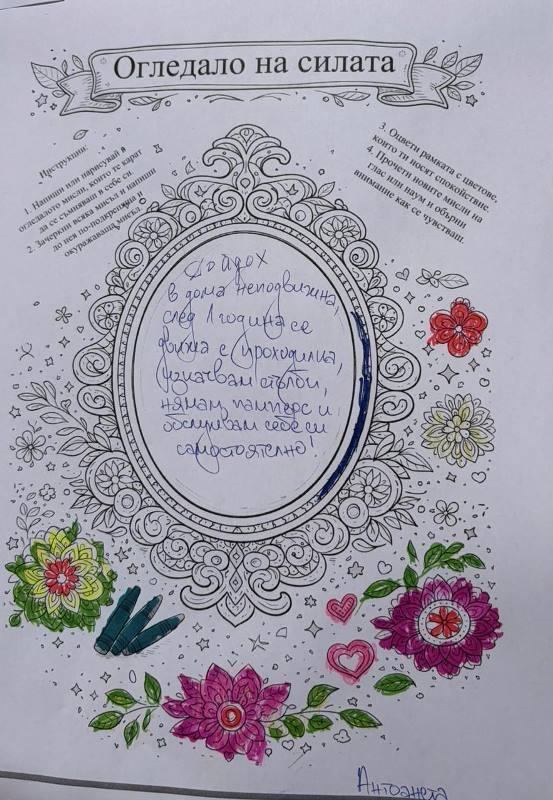 Огледало на силата
Инструкции:
1. Напиши или нарисувай в
огледалото мисли, които те карат
да се съмняваш в себе си.
2. Зачеркни всяка мисъл и напиши
до нея по-подкрепяща и
окуражаваща мисъл.
3. Оцвети рамката с цветове,
които ти носят спокойствие.
4. Прочети новите мисли на
глас или наум и обърни
внимание как се чувстваш.
Дойдох
в дома неподвижна,
след 1 година се
движа с проходилка,
изкачвам стълби,
нямам памперс и
обслужвам себе си
самостоятелно!
Антоанета